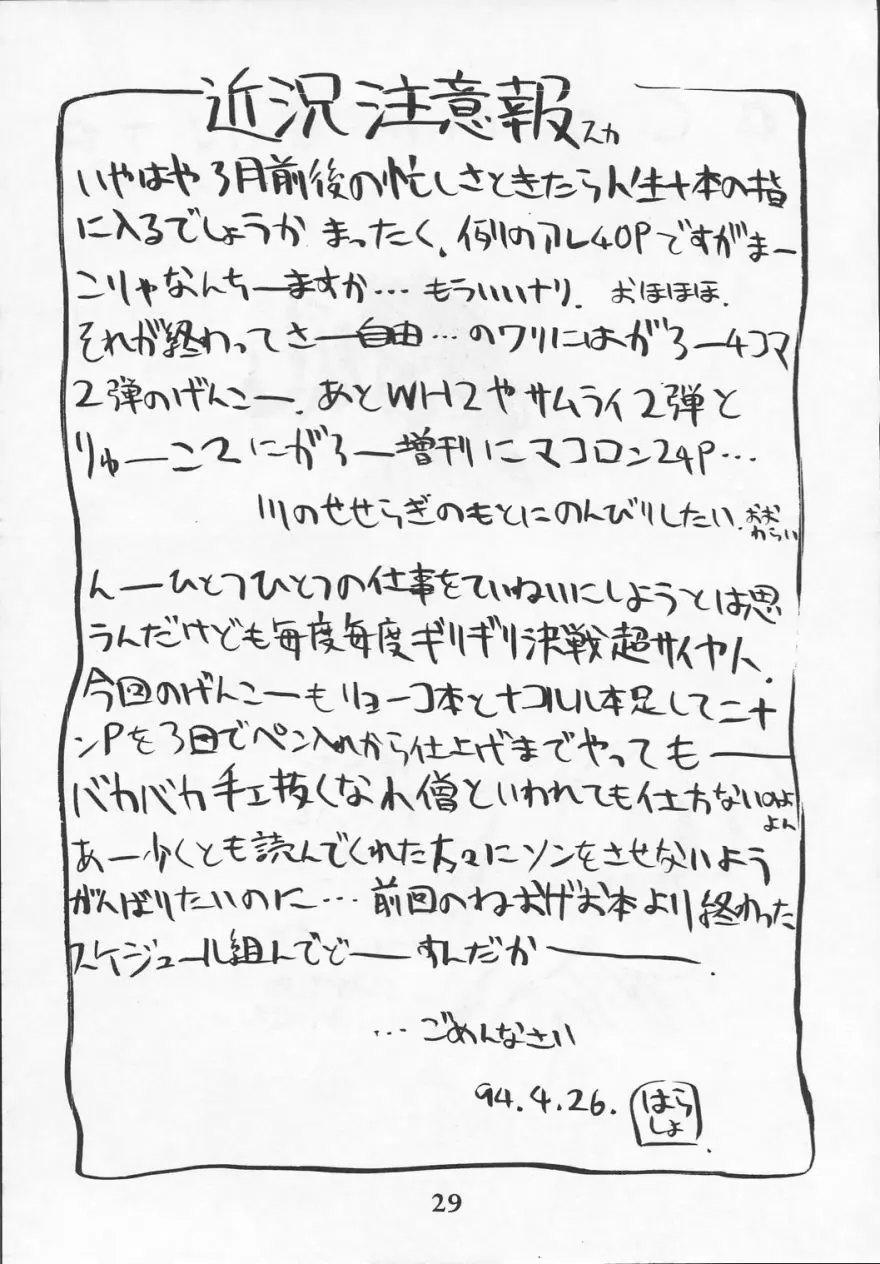 近況注意報スカ
いやはや3月前後の忙しさときたら人生十本の指
に入るでしょうか まったく、例のアレ40Pですがまー
こりゃなんちーますか… もういいナリ. おほほほ.
それが終わってさー自由…のワリにはがろー4コマ
2弾のげんこー. あとWH2やサムライ2弾と
りゅーこ2にがろー増刊にマコロン24P…
川のせせらぎのもとにのんびりしたい.おおわらい
んーひとつひとつの仕事をていねいにしようとは思
うんだけども毎度毎度ギリギリ決戦超サイヤ人.
今回のげんこーもリョーコ本とナコルル本足して二十
ンPを3日でペン入れから仕上げまでやってもーー
バカバカ手ェ抜くなれ僧といわれても仕方ないのよよん
あー少くとも読んでくれた方々にソンをさせないよう
がんばりたいのに… 前回のねおげお本より終わった
スケジュール組んでどーーすんだかーーー.
…ごめんなさい
94.4.26. はらしょ.
29